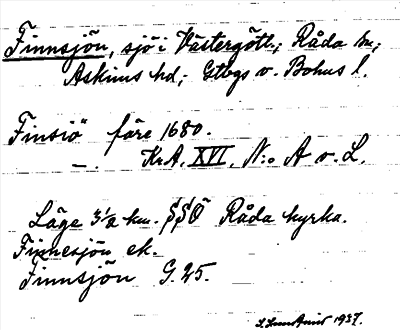 Finnsjön, sjö i Västergötl.; Råda sn;
Askims hd; Gtbgs o. Bohus l.
Finsiö före 1680.
—. KrA, XVI, N:o A o. L.
Läge 3½ km. SSÖ Råda kyrka.
Finnesjön ek.
Finnsjön G. 25.
1937.